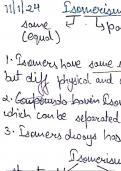 11/1/24 Isomerism
same
(equal)
1. Isomers have same
but diff physical and
2. Compounds havin Isom
which can be separated
3. Isomers always has
Isomerism